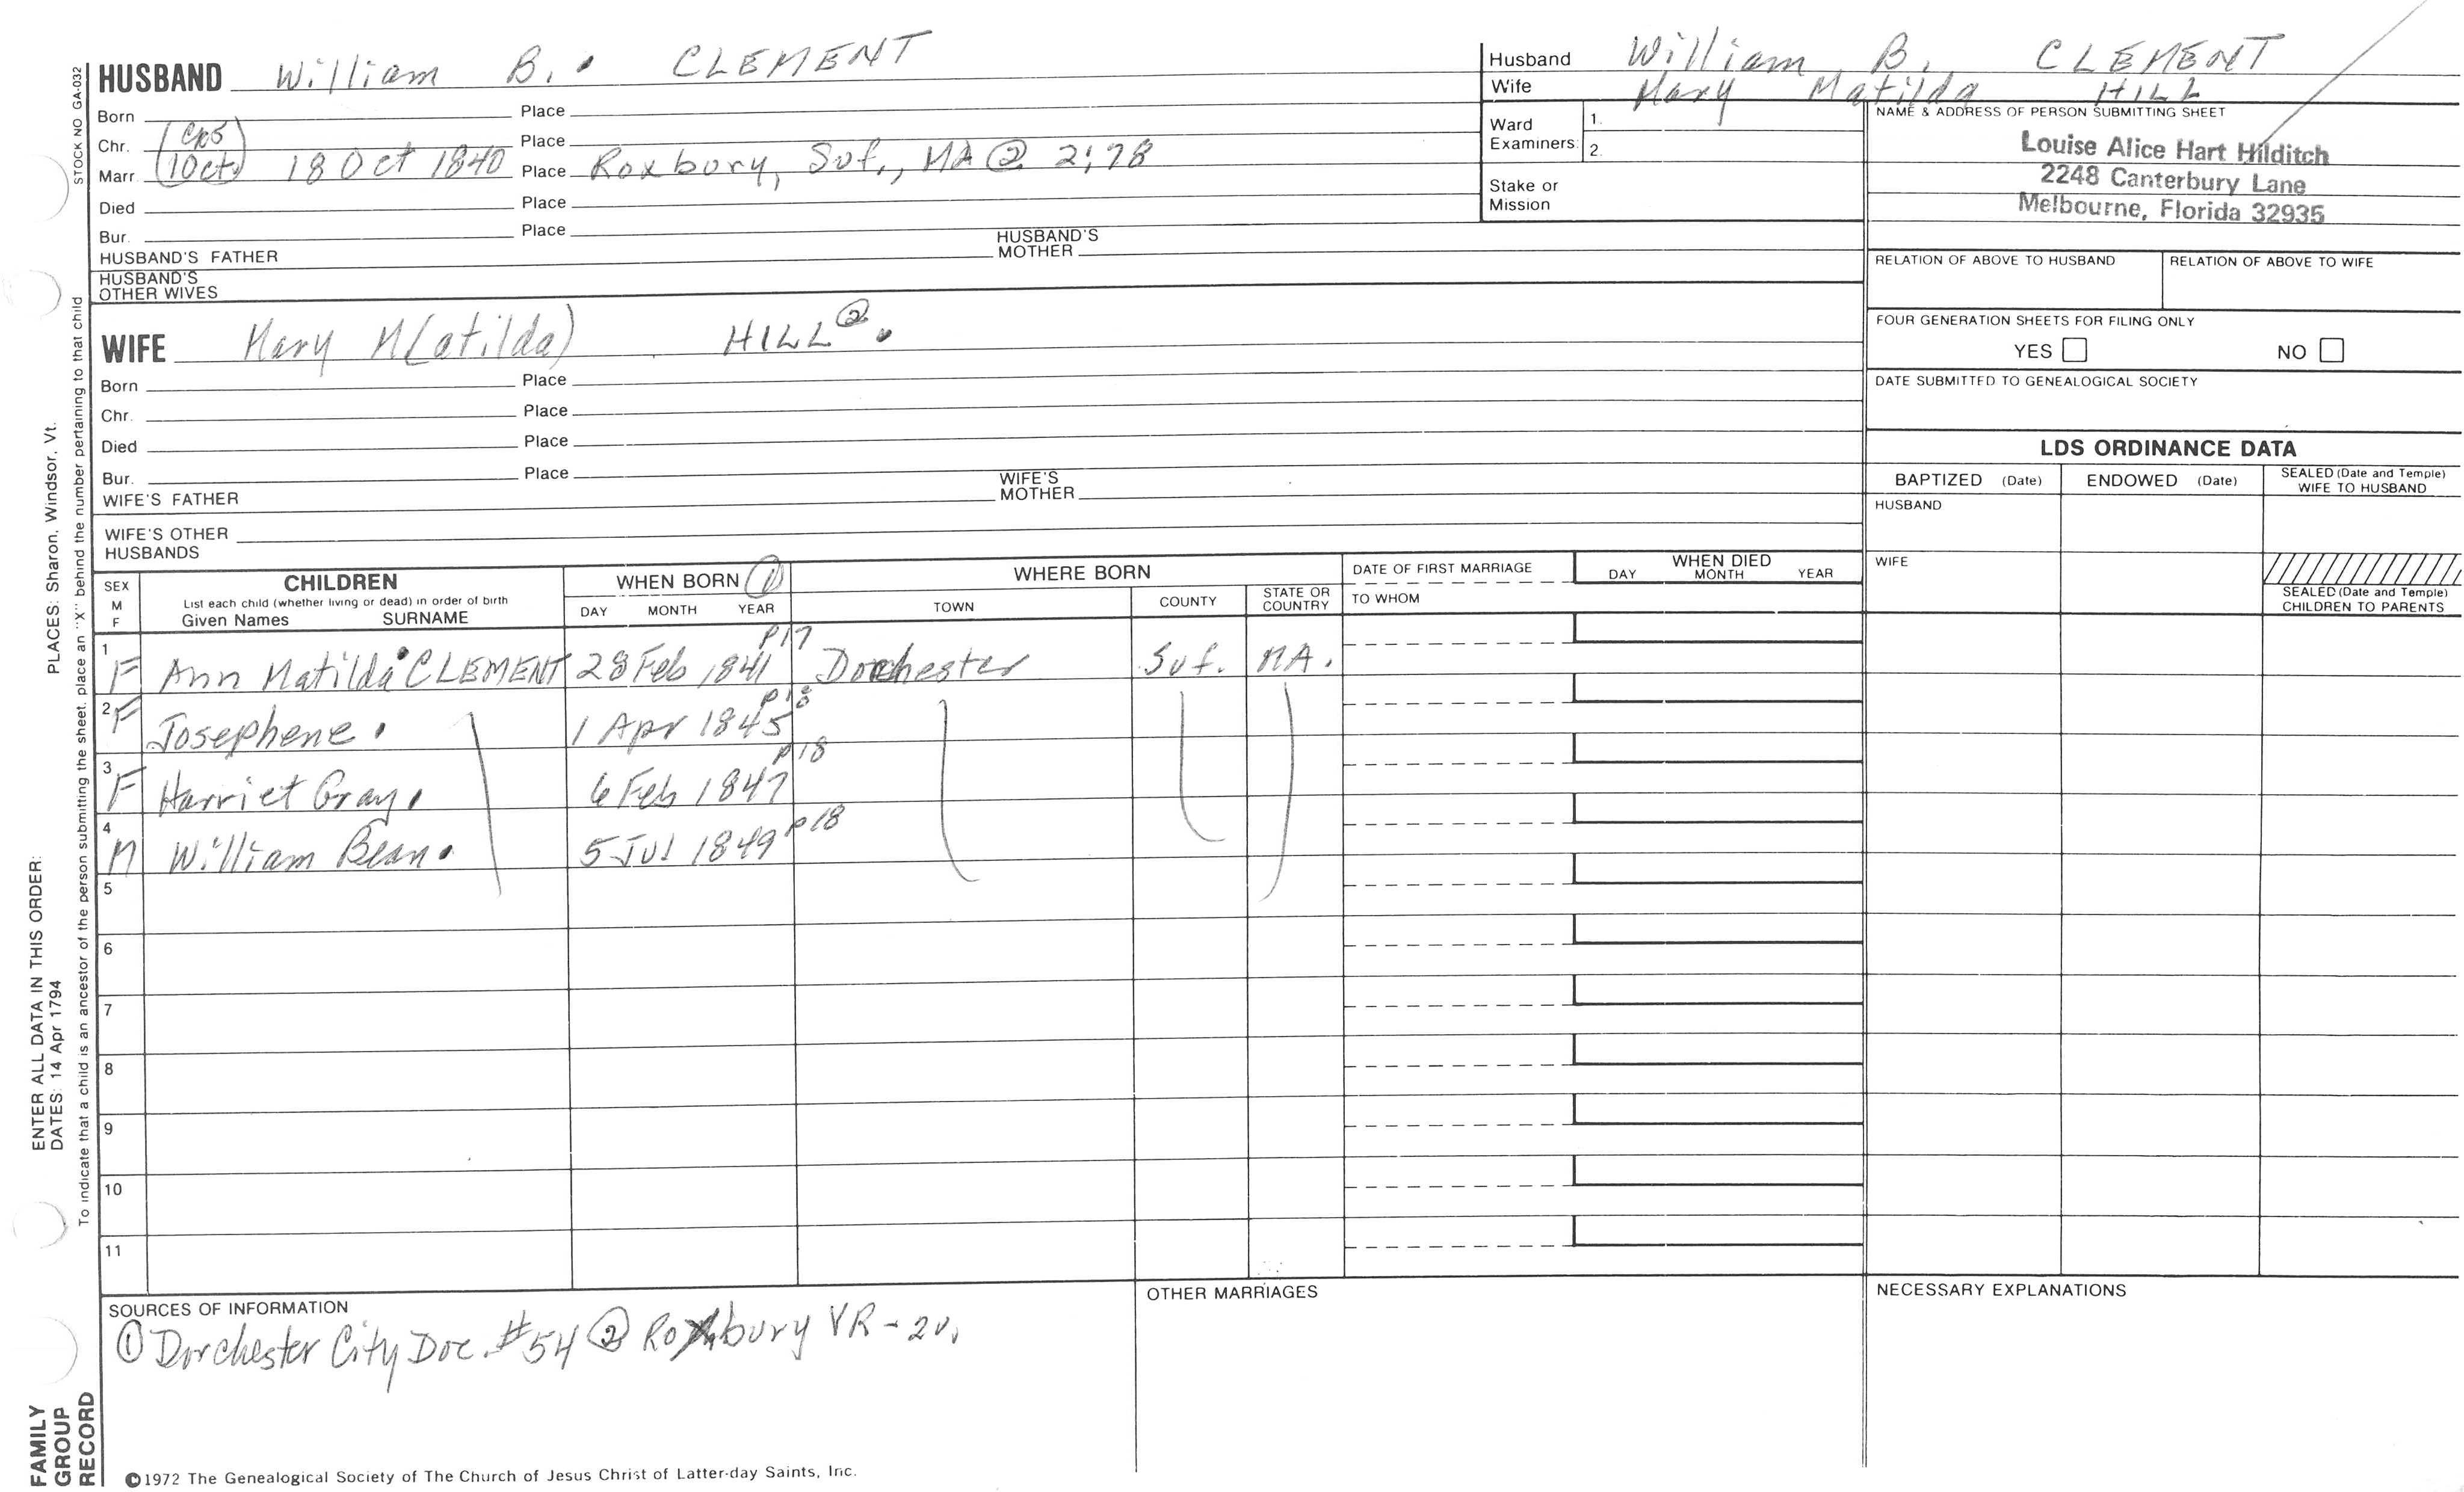 STOCK NO GA-032
HUSBAND William B. CLEMENT
Born Place
Chr. Place
(Cps
1 Oct) Marr. 18 Oct 1840 Place Roxbury, Suf., MA ② 2:78
Died Place
Bur. Place
HUSBAND'S FATHER HUSBAND'S MOTHER
HUSBAND'S
OTHER WIVES
WIFE Mary M(atilda) HILL ②.
Born Place
Chr. Place
Died Place
Bur. Place
WIFE'S FATHER WIFE'S MOTHER
WIFE'S OTHER
HUSBANDS
Husband William B. CLEMENT
Wife Mary Matilda HILL
Ward Examiners: 1.
2.
Stake or
Mission
NAME & ADDRESS OF PERSON SUBMITTING SHEET
Louise Alice Hart Hilditch
2248 Canterbury Lane
Melbourne, Florida 32935
RELATION OF ABOVE TO HUSBAND RELATION OF ABOVE TO WIFE
FOUR GENERATION SHEETS FOR FILING ONLY
YES NO
DATE SUBMITTED TO GENEALOGICAL SOCIETY
LDS ORDINANCE DATA
BAPTIZED (Date) ENDOWED (Date) SEALED (Date and Temple) WIFE TO HUSBAND
HUSBAND
WIFE
SEALED (Date and Temple)
CHILDREN TO PARENTS
SEX M F CHILDREN WHEN BORN ① WHERE BORN DATE OF FIRST MARRIAGE WHEN DIED
List each child (whether living or dead) in order of birth
Given Names SURNAME DAY MONTH YEAR TOWN COUNTY STATE OR COUNTRY TO WHOM DAY MONTH YEAR
1 F Ann Matilda CLEMENT 28 Feb 1841 p17 Dorchester Suf. MA.
2 F Josephene. 1 Apr 1845 p18
3 F Harriet Gray. 6 Feb 1847 p18
4 M William Bean. 5 Jul 1849 p18
5
6
7
8
9
10
11
SOURCES OF INFORMATION
① Dorchester City Doc. #54 ② Roxbury VR - 2v.
OTHER MARRIAGES
NECESSARY EXPLANATIONS
©1972 The Genealogical Society of The Church of Jesus Christ of Latter-day Saints, Inc.
FAMILY
GROUP
RECORD
ENTER ALL DATA IN THIS ORDER:
DATES: 14 Apr 1794 PLACES: Sharon, Windsor, Vt.
To indicate that a child is an ancestor of the person submitting the sheet, place an "X" behind the number pertaining to that child